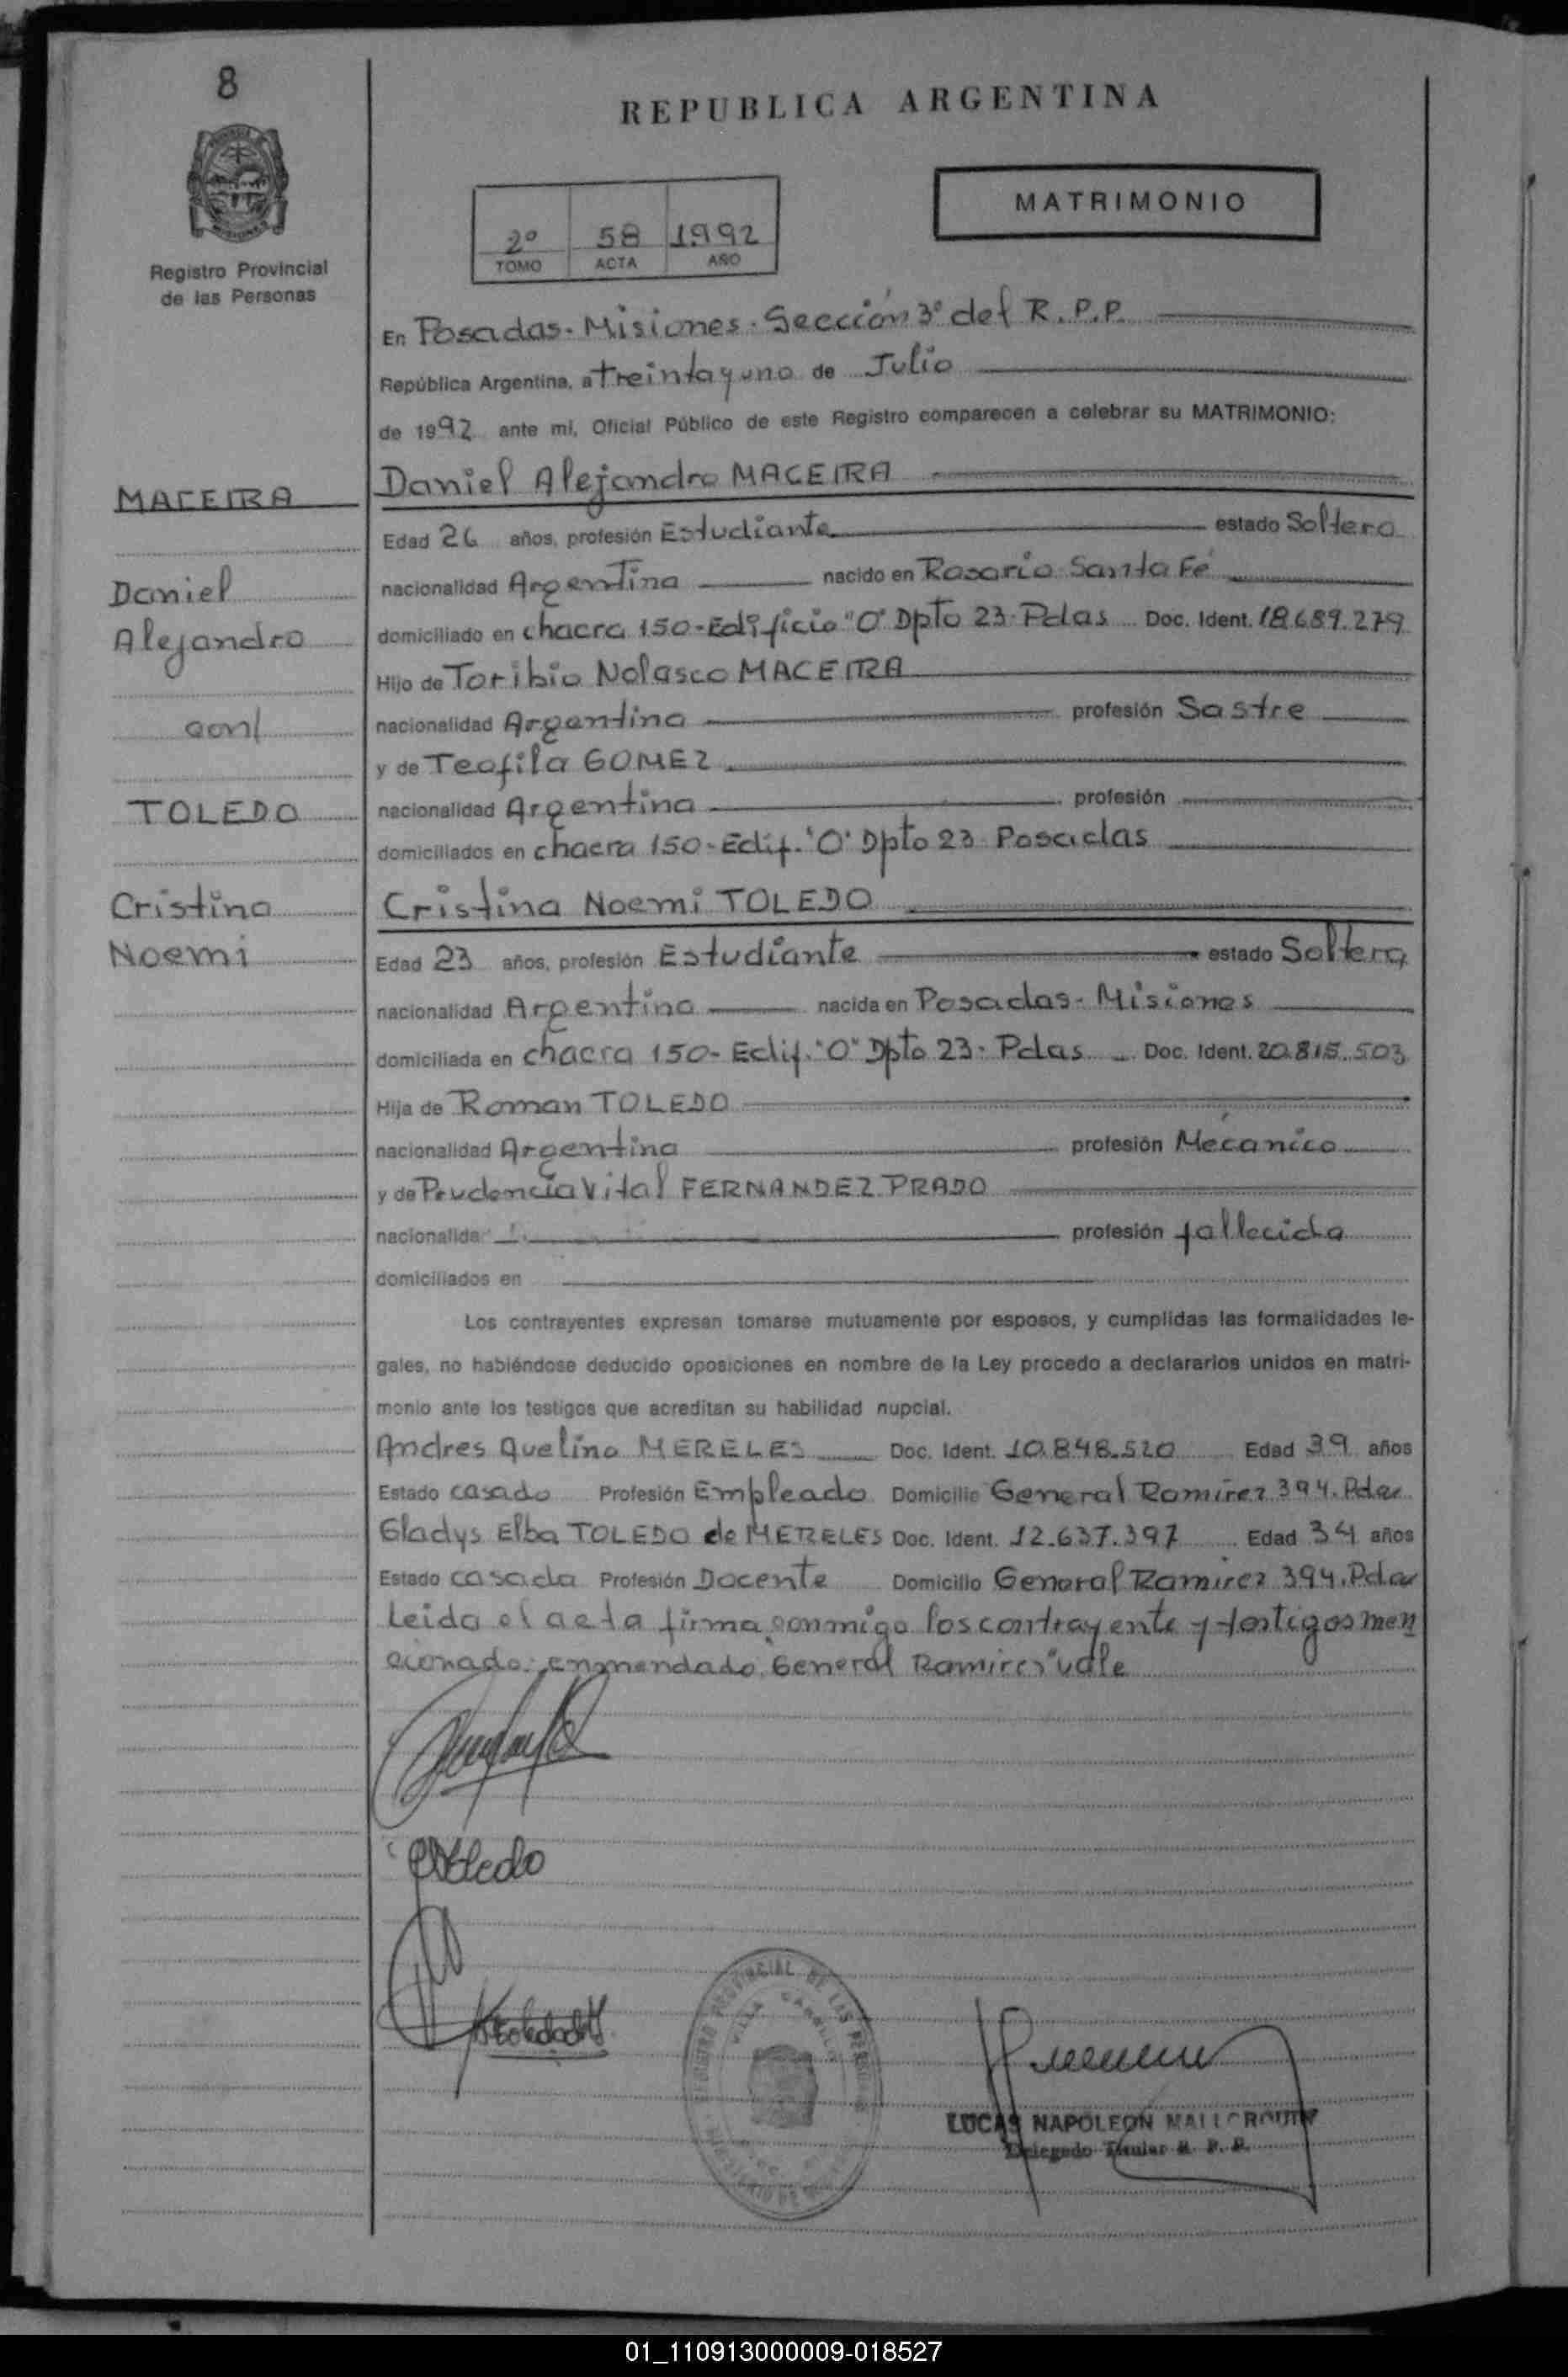 8
REPUBLICA ARGENTINA
MATRIMONIO
2º 58 1992
TOMO ACTA AÑO
Registro Provincial
de las Personas
En Posadas. Misiones. Sección 3º del R.P.P.
República Argentina, a treinta y uno de Julio
de 1992 ante mi, Oficial Público de este Registro comparecen a celebrar su MATRIMONIO:
MACEIRA
Daniel
Alejandro
con/
TOLEDO
Cristina
Noemi
Daniel Alejandro MACEIRA
Edad 26 años, profesión Estudiante estado Soltero
nacionalidad Argentina nacido en Rosario Santa Fé
domiciliado en chacra 150-Edificio "O" Dpto 23. Pdas Doc. Ident. 18.689.279
Hijo de Toribio Nolasco MACEIRA
nacionalidad Argentina profesión Sastre
y de Teofila GOMEZ
nacionalidad Argentina profesión
domiciliados en chacra 150-Edif. "O" Dpto 23 Posadas
Cristina Noemi TOLEDO
Edad 23 años, profesión Estudiante estado Soltera
nacionalidad Argentina nacida en Posadas-Misiones
domiciliada en chacra 150-Edif. "O" Dpto 23. Pdas Doc. Ident. 20.815.503
Hija de Roman TOLEDO
nacionalidad Argentina profesión Mécanico
y de Prudencia Vital FERNANDEZ PRADO
nacionalida profesión fallecida
domiciliados en
Los contrayentes expresan tomarse mutuamente por esposos, y cumplidas las formalidades le-
gales, no habiéndose deducido oposiciones en nombre de la Ley procedo a declararlos unidos en matri-
monio ante los testigos que acreditan su habilidad nupcial.
Andres Avelino MERELES Doc. Ident. 10.848.520 Edad 39 años
Estado casado Profesión Empleado Domicilio General Ramirez 394. Pdas
Gladys Elba TOLEDO de MERELES Doc. Ident. 12.637.397 Edad 34 años
Estado casada Profesión Docente Domicilio General Ramirez 394. Pdas
Leida el acta firma conmigo los contrayente y testigos men
cionado: enmendado: General Ramirez "vale
CNToledo
REGISTRO PROVINCIAL DE LAS PERSONAS
VILLA CABELLO
LUCAS NAPOLEON
Delegado Titular R. P. P.
01_110913000009-018527